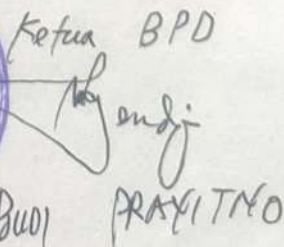 Ketua BPD
BUDI PRAYITNO